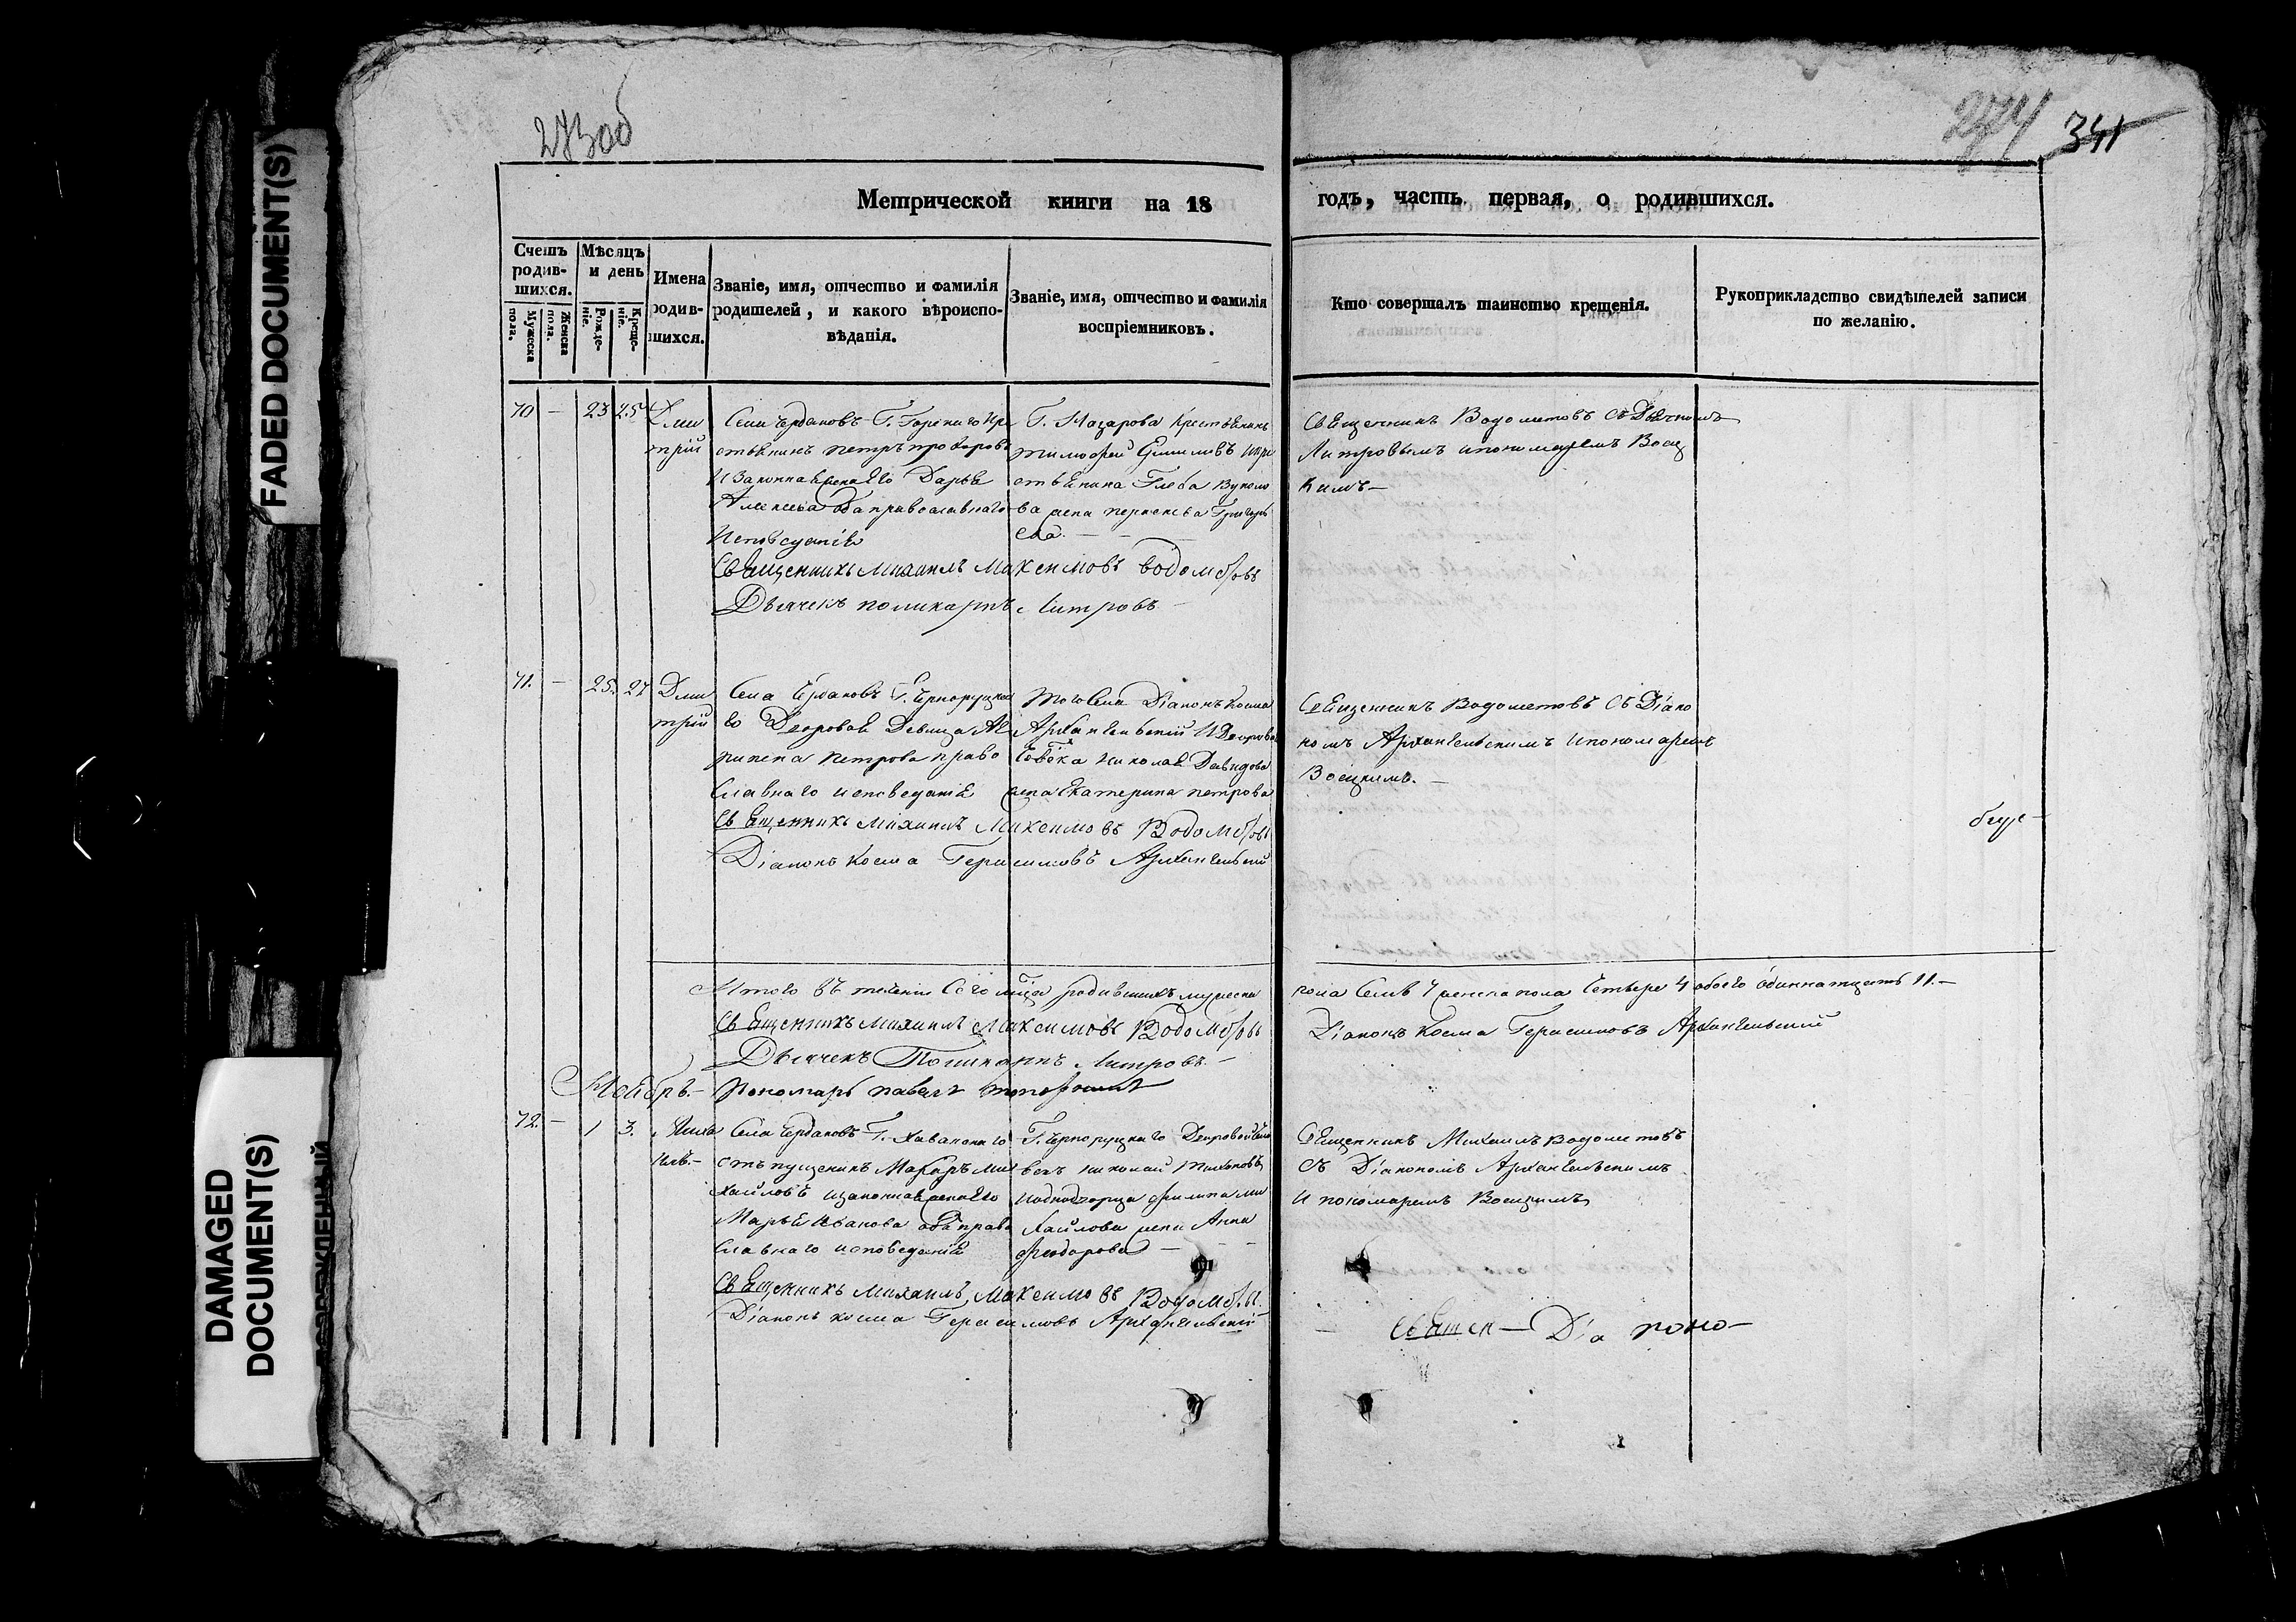 273об
274 341
Метрической книги на 18
годъ, часть первая, о родившихся.
Счетъ родив-шихся.
Мужеска пола.
Женска пола.
Мѣсяцъ и день
Рожде-ніе.
Креще-ніе.
Имена родив-шихся.
Званіе, имя, отчество и фамилія
родителей, и какого вѣроиспо-
вѣданія.
Званіе, имя, отчество и фамилія
воспріемниковъ.
Кто совершалъ таинство крещенія.
Рукоприкладство свидѣтелей записи
по желанію.
70 — 23 25 Дми
трій
Села Чердаковъ Г. Горскаго кре
стьянинъ петръ прохоровъ
и Законная жена Его Дарья
Алексеева оба православнаго
Исповеданія
Г. Назарова Крестьянинъ
тимофей Ефимовъ икре
стьянина Глеба Вуколо
ва жена Григорь
ева. — —
Священникъ Водометовъ съ Дьячкомъ
Литровымъ ипономаремъ Воец
кимъ —
Священникъ михаилъ Максимовъ Водометовъ
Дьячекъ поликарпъ Литровъ
71. — 25. 27 Дми
трій
Села Чердаковъ Г. Черноруцка
го Дворовая Девица
петрова право
славнаго исповеданія
того Села Діаконъ Косма
Архангельскій И Дворова
человека николая Давидова
жена Екатерина петрова
Священникъ Водометовъ съ Діако
номъ Архангельскимъ ипономаремъ
Воецкимъ. —
Священникъ михаилъ Максимовъ Водометовъ
Діаконъ Косма Герасимовъ Архангельскій
Итого въ теченіи Сего мца родившихъ мужеска
пола Семь 7 женска пола Четыре 4 обоего одиннатцать 11. —
Священникъ михаилъ Максимовъ Водометовъ
Діаконъ Косма Герасимовъ Архангельскій
Дьячекъ Поликарпъ Литровъ. —
Ноябрь. — Пономарь павелъ
72. — 1 3. Миха
илъ. —
Села Чердаковъ Г.
отпущеникъ Макаръ Ми
хайловъ изаконная жена Его
Марья Иванова оба право
славнаго исповеданія
Г. Черноруцкаго Дворовой чело
векъ николай Тихоновъ
филипа ми
хайлова жена Анна
феодорова — —
Священникъ Михаилъ Водометовъ
съ Діакономъ Архангельскимъ
и пономаремъ Воецкимъ
Священникъ михаилъ Максимовъ Водометовъ
Діаконъ косма Герасимовъ Архангельскій
Священ — Діа поно —
FADED DOCUMENT(S)
DAMAGED
DOCUMENT(S)